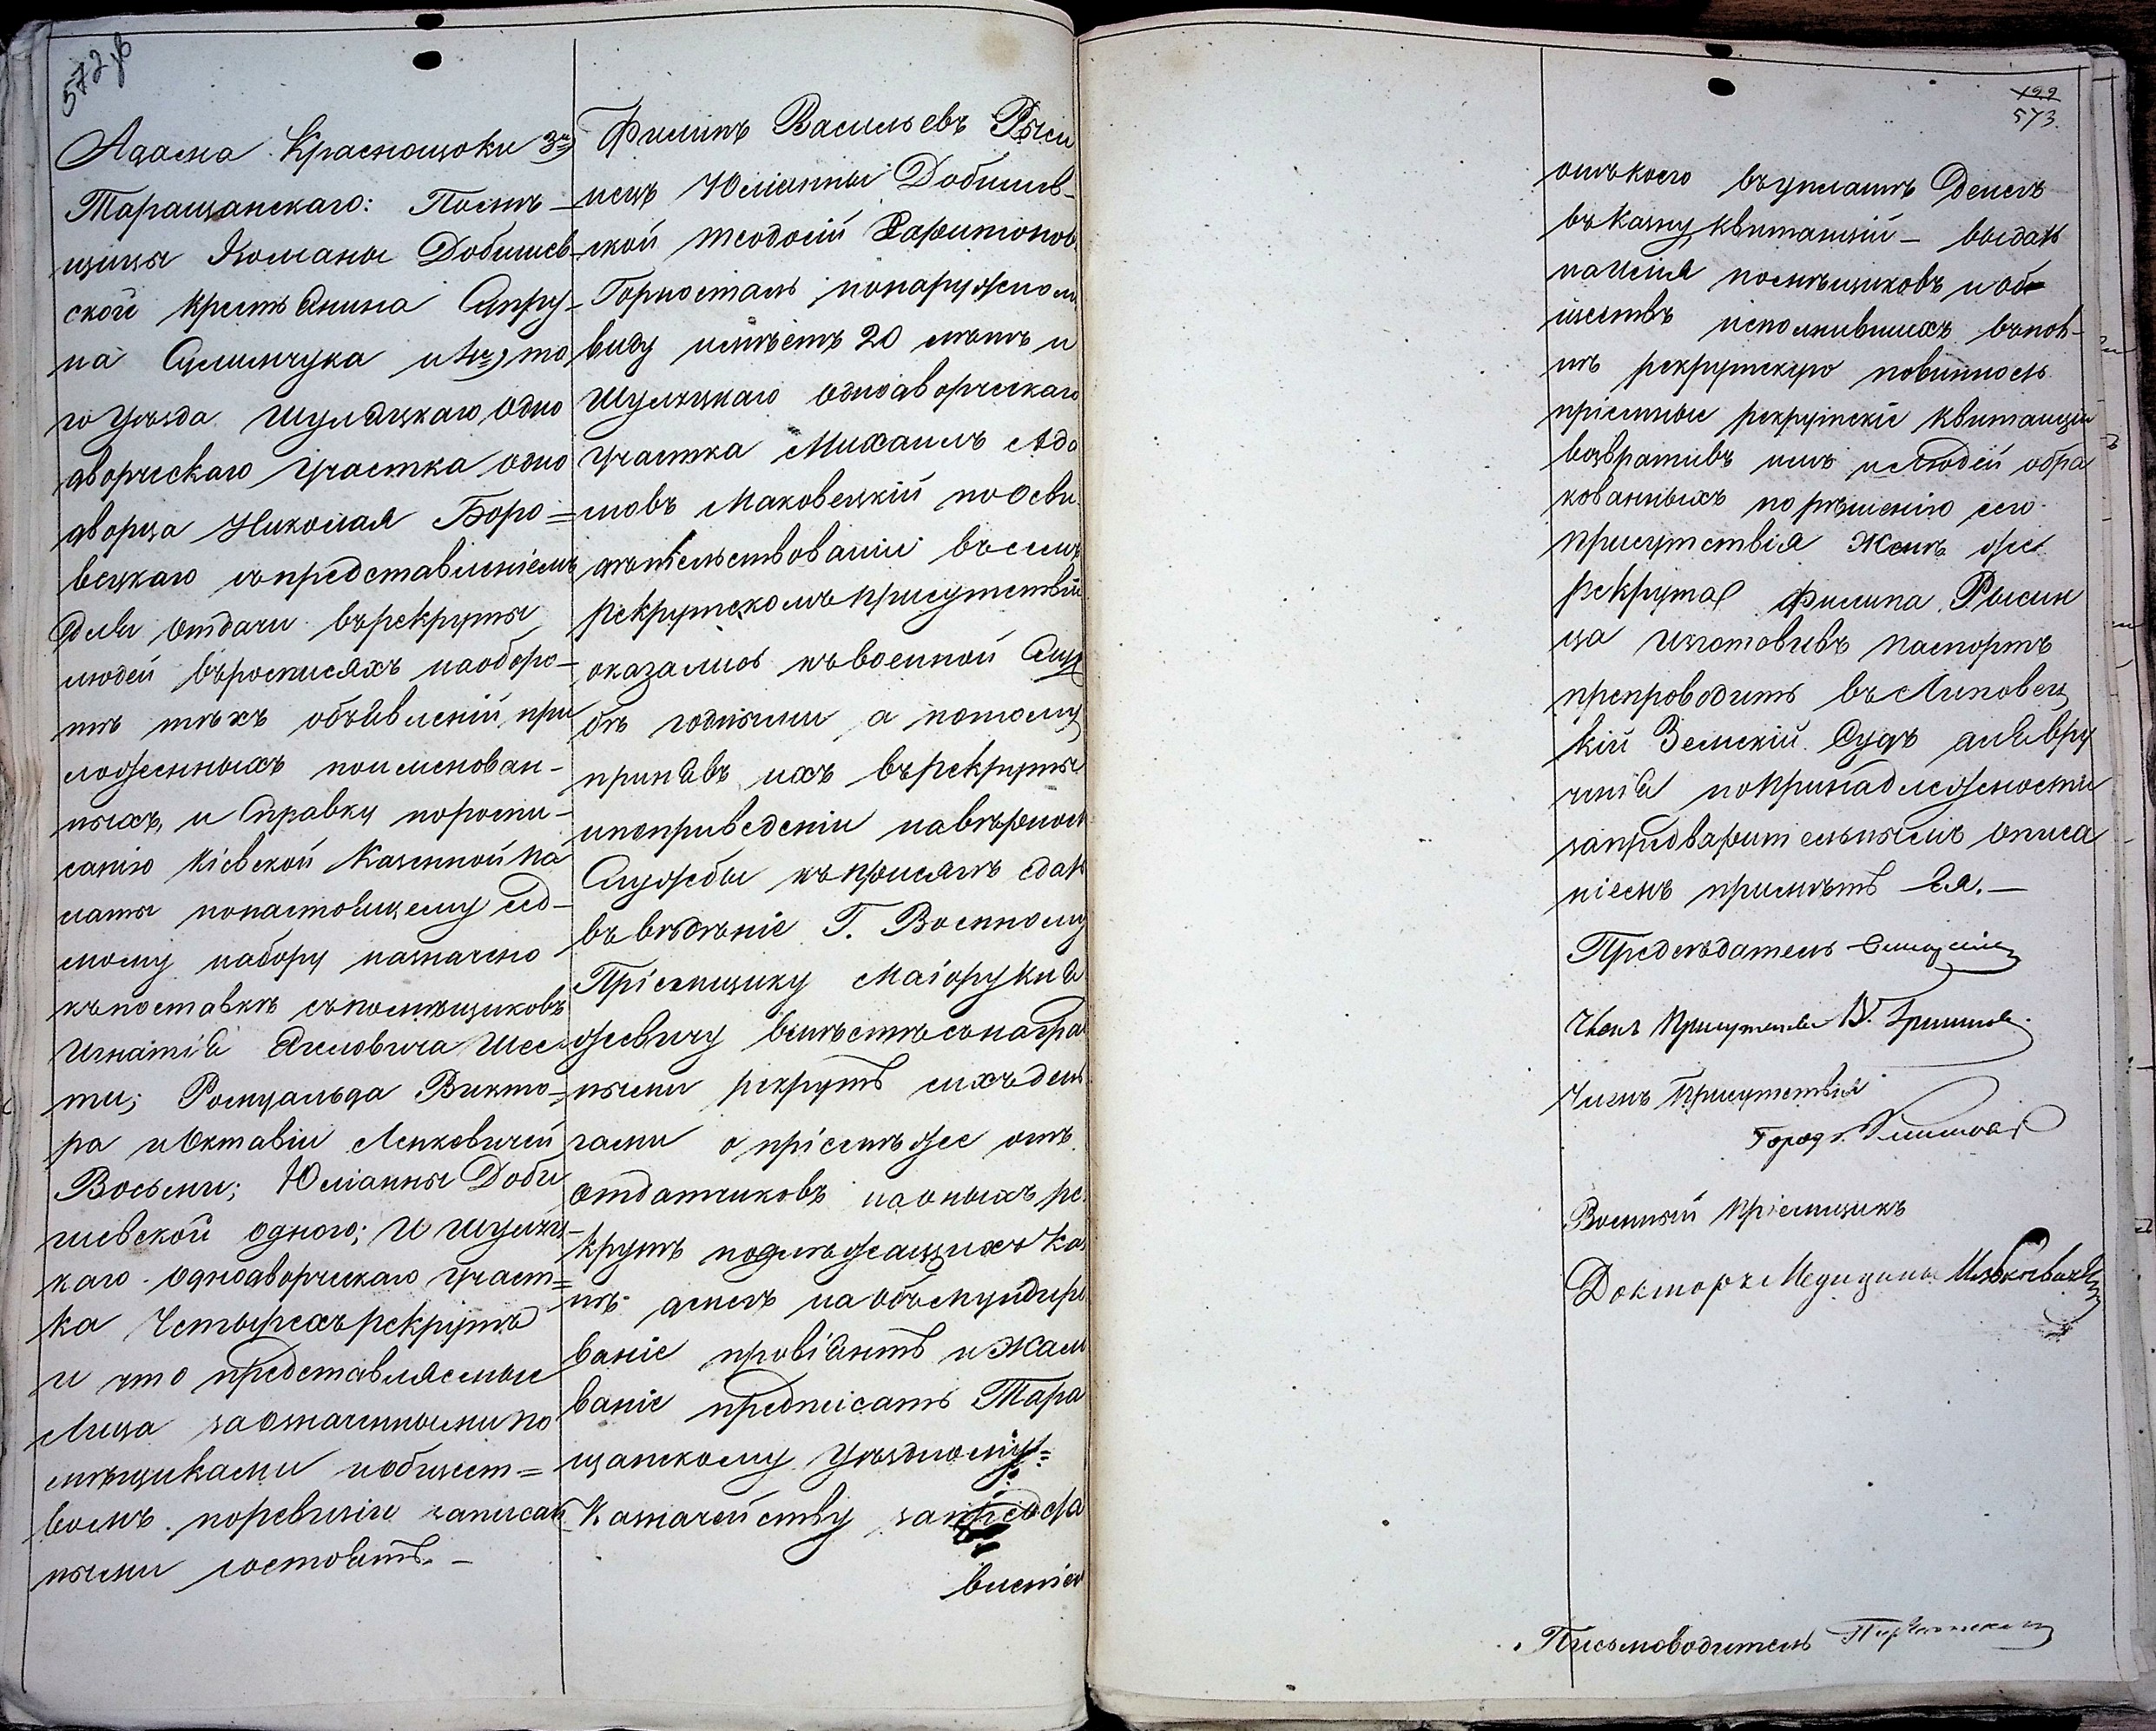 572 об
Адама Краснощоки 3е)
Таращанскаго: Помѣ-
щицы Юлианы Добишев-
ской крестьянина Опру-
на Слиымчука и 4е) то
го Уѣзда Шуляцкаго Одно
дворческаго Участка одно
дворца Николая Боро=
вецкаго съ представленіемъ
для отдачи въ рекруты
людей въ росписяхъ на оборо-
тѣ тѣхъ объявленій, при
ложенныхъ поименован-
ныхъ, и Справку по роспи-
санію Кіевской Казенной Па
латы по настоящему сед-
мому набору назначено
къ поставкѣ съ помѣщиковъ
Игнатія Яковича Шес
ти; Ромуальда Викто-
ра и Октавіи Ленкевичей
Восьми; Юліанны Доби
шевской одного; и Шуляц-
каго одно дворческаго участ=
ка Четырехъ рекрутъ
и что представляемые
Лица за означенными по
мѣщиками и общест=
вомъ по ревизіи записан
ными состоятъ. –
Филипъ Васильевъ Рыси
нецъ Юліанны Добишев-
ской Теодосій Харитоновъ
Горносталь по наружному
виду имѣетъ 20 лѣтъ и
Шуляцкаго однодворческаго
Участка Михаилъ Ада
мовъ Маковецкій по Осви
дѣтельствованіи въ семъ
рекрутскомъ присутствіи
оказались къ военной Служ
бѣ годными, а потому
принявъ ихъ въ рекруты
и по приведеніи на вѣрность
Службы къ присягѣ сдать
въ вѣдѣніе Г. Военному
Пріемщику Маіору Кня
жевичу вмѣстѣ съ награ
ными рекрутъ сихъ день
гами о пріемѣ же отъ
отдатчиковъ на оныхъ ре
крутъ подлежащихъ Каз
нѣ денегъ на обмундиро
ваніе провіантъ и Жало
ваніе предписать Тара
щанскому Уѣздному=
Казначейству, за предъя
вленіем
199
573.
отъ коего въ уплатѣ Денегъ
въ Казну квитанцій – выдать
на Имя помѣщиковъ и Об
ществъ исполнившихъ въ пов-
тъ рекрутскую повинность
пріемные рекрутскіе Квитанціи
возвративъ имъ и Людей обра
кованныхъ по рѣшенію сего
Присутствія Женѣ же
рекрута Филипа Рысин
ца Изготовивъ паспортъ
препроводить въ Липовец
кій Земскій Судъ для вру
ченія по принадлежности
за предварительнымъ описа
ніемъ примѣтъ Ея. –
Предсѣдатель
Членъ Присутствія
Членъ Присутствія
Город.
Военный Пріемщикъ
Докторъ Медицины
Письмоводитель